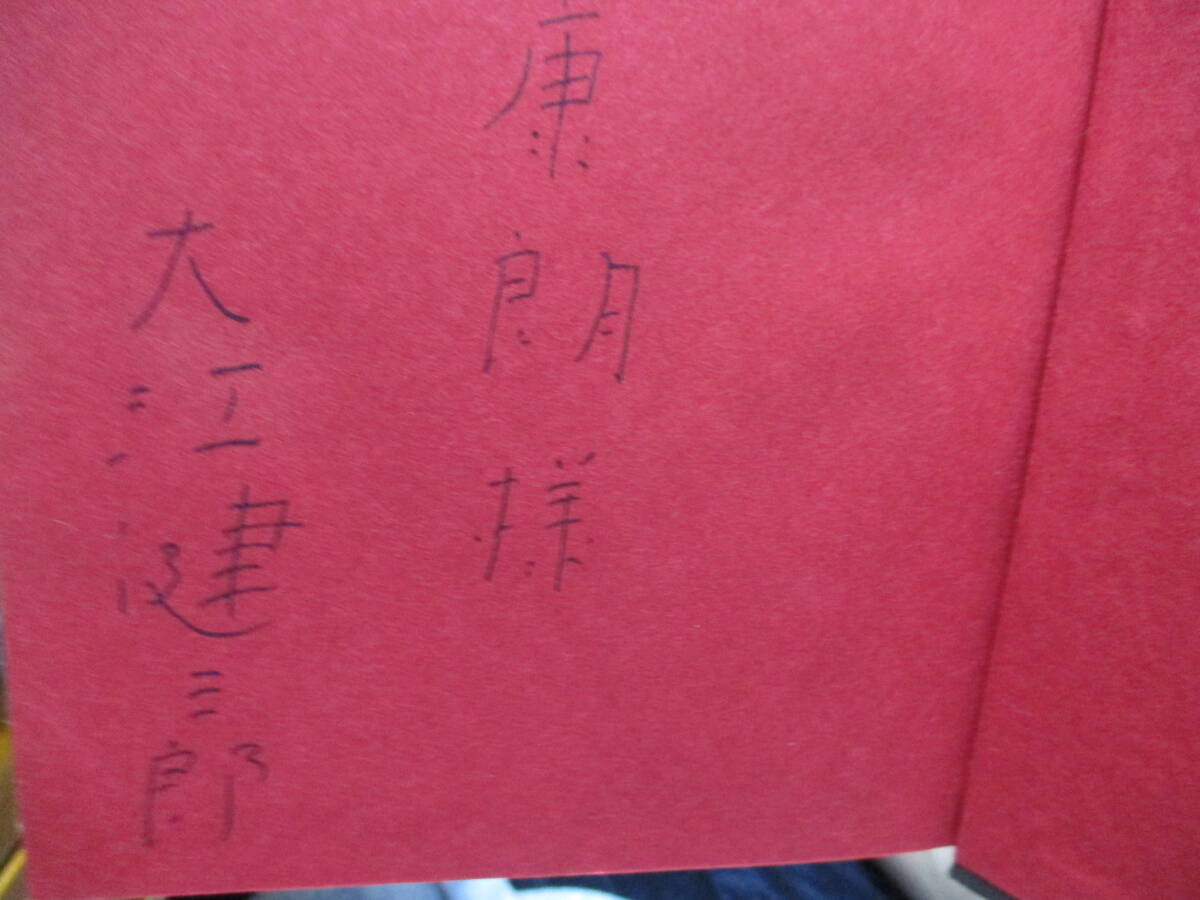 康朗様
大江健三郎